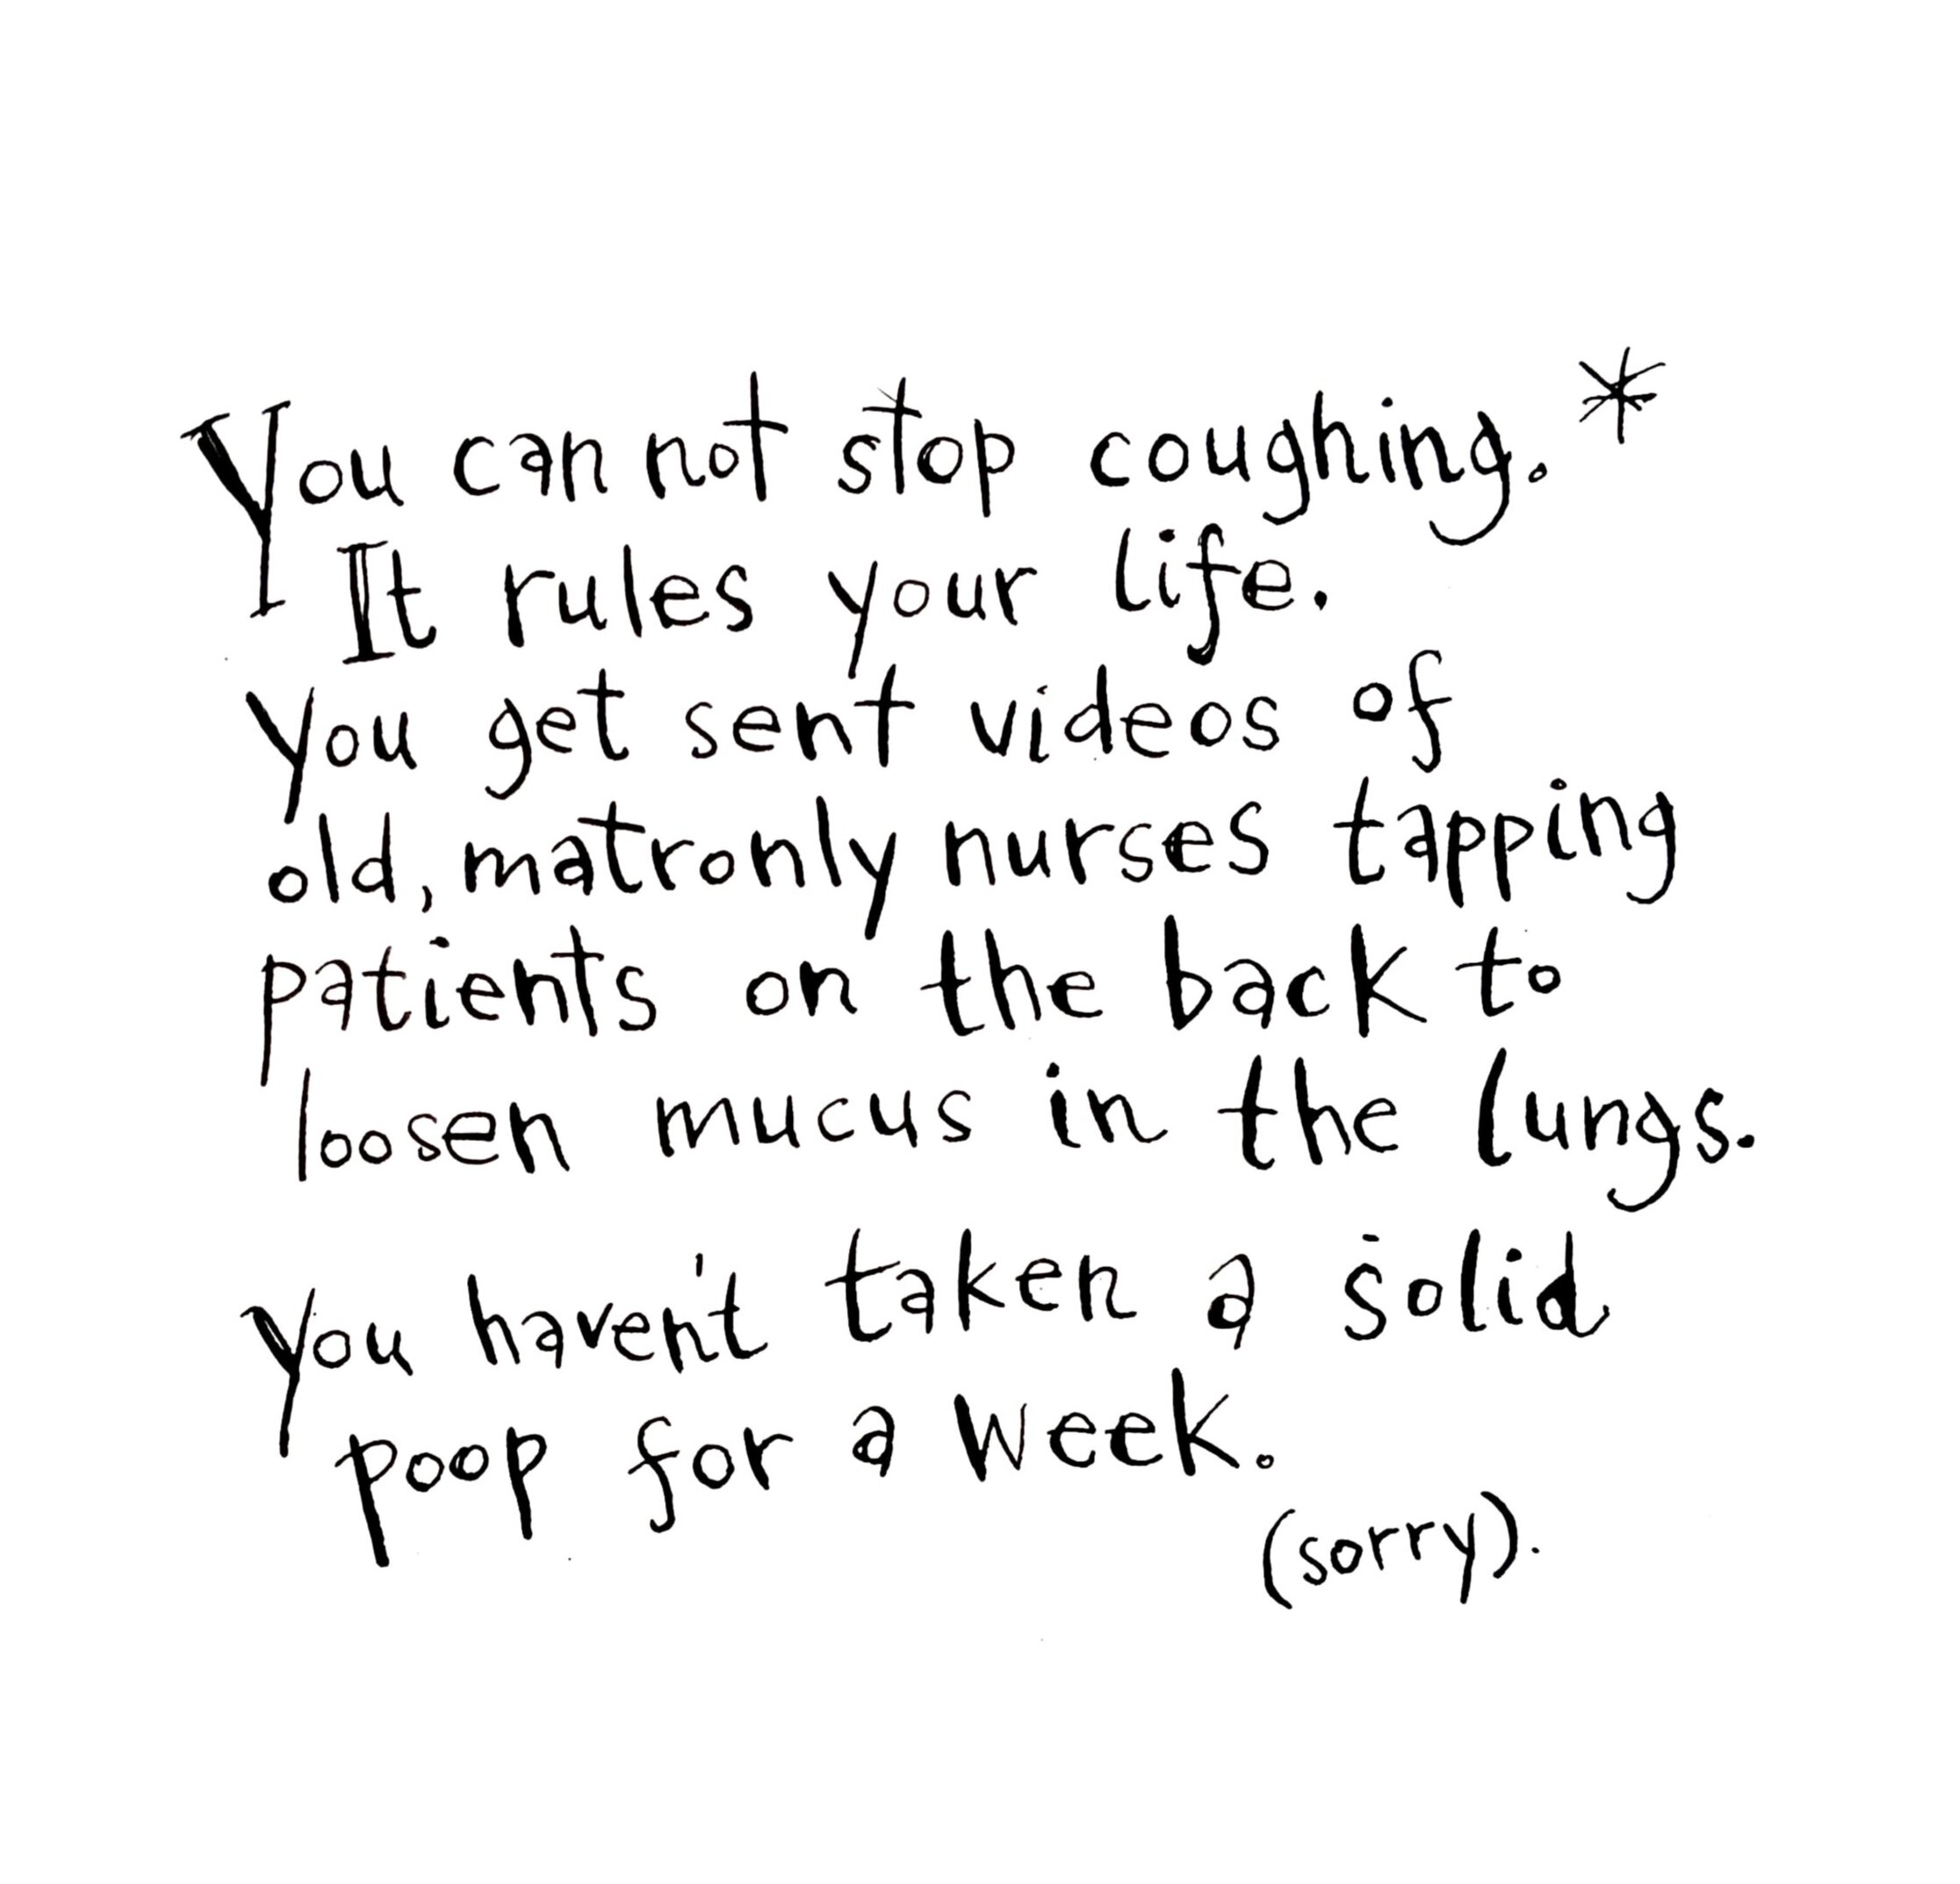 You can not stop coughing.*
It rules your life.
You get sent videos of
old, matronly nurses tapping
patients on the back to
loosen mucus in the lungs.
You haven't taken a solid
poop for a week.
(sorry).